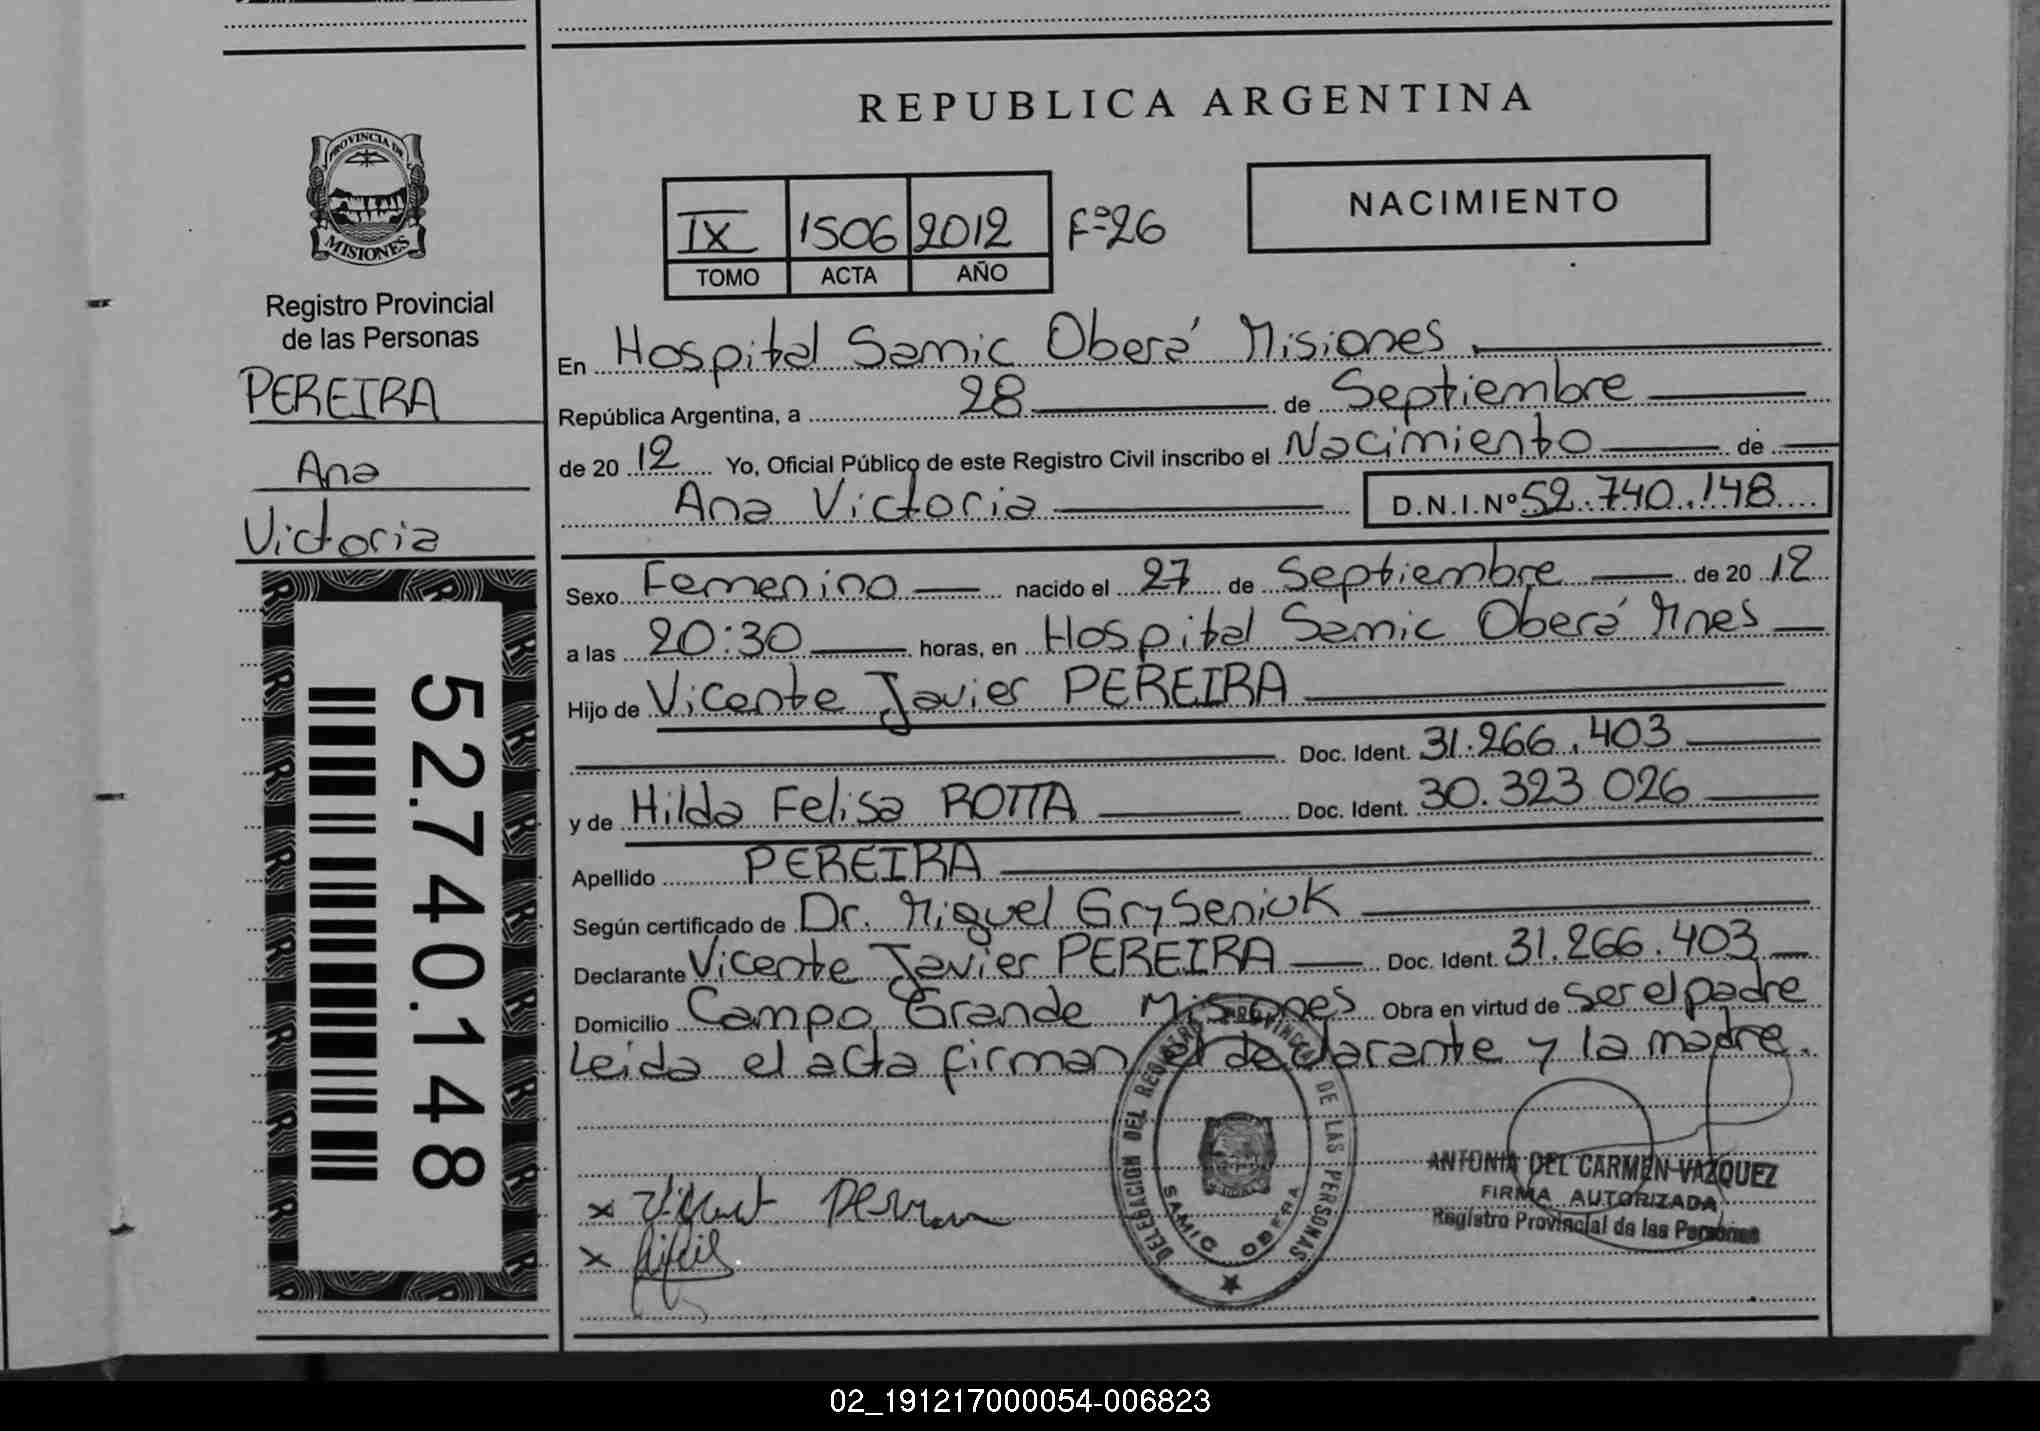 PROVINCIA DE
MISIONES
Registro Provincial
de las Personas
PEREIRA
Ana
Victoria
52.740.148
REPUBLICA ARGENTINA
IX 1506 2012 Fº26
TOMO ACTA AÑO
NACIMIENTO
En Hospital Samic Oberá Misiones
República Argentina, a 28 de Septiembre
de 20 12 Yo, Oficial Público de este Registro Civil inscribo el Nacimiento de
Ana Victoria D.N.I.Nº 52.740.148
Sexo Femenino nacido el 27 de Septiembre de 20 12
a las 20:30 horas, en Hospital Samic Oberá Mnes
Hijo de Vicente Javier PEREIRA
Doc. Ident. 31.266.403
y de Hilda Felisa ROTTA Doc. Ident. 30.323.026
Apellido PEREIRA
Según certificado de Dr. Miguel Gryseniuk
Declarante Vicente Javier PEREIRA Doc. Ident. 31.266.403
Domicilio Campo Grande Misiones Obra en virtud de ser el padre
Leida el acta firman el declarante y la madre.
DELEGACION DEL REGISTRO PROVINCIAL DE LAS PERSONAS
SAMIC OBERA
ANTONIA DEL CARMEN VAZQUEZ
FIRMA AUTORIZADA
Registro Provincial de las Personas
x
x
02_191217000054-006823